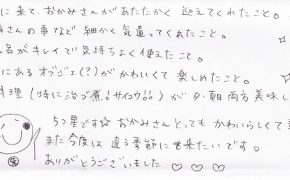 に来て、おかみさんがあたたかく 迎えてくれたこと。
さんの事など 細かく気遣ってくれたこと。
呂がキレイで気持ちよく使えたこと。
にあるオブジェ(?)がかわいくて 楽しめたこと。
料理(特に治部煮!サイコウ!!)が夕・朝両方美味し
5つ星です☆ おかみさんとってもかわいらしくて
また今度は違う季節に出来たいです。
ありがとうございました ♡ ♡ ♡